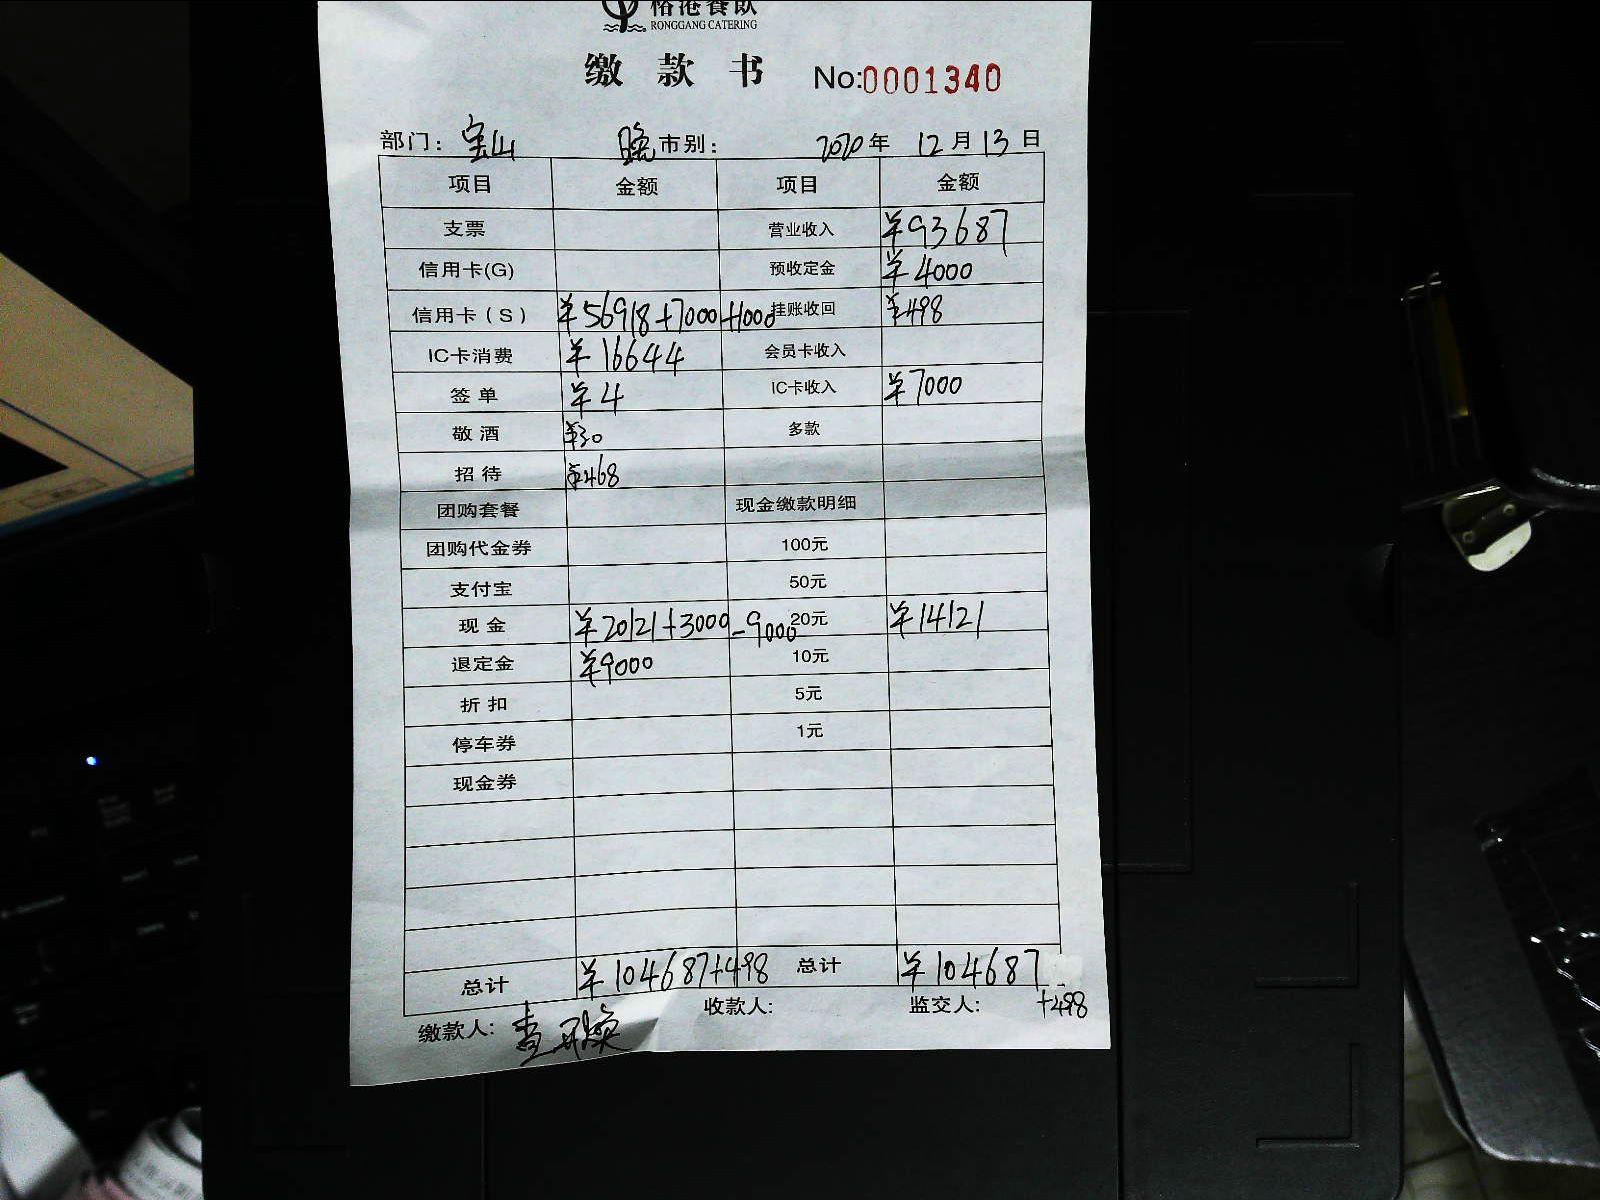 榕港餐飲
RONGGANG CATERING
缴款书 No:0001340
部门：宝山 晚市别： 2020年 12月13日
项目 金额 项目 金额
支票 营业收入 ¥93687
信用卡(G) 预收定金 ¥4000
信用卡（S） ¥56918+7000+1000 挂账收回 ¥498
IC卡消费 ¥16644 会员卡收入
签单 ¥4 IC卡收入 ¥7000
敬酒 ¥30 多款
招待 ¥468
团购套餐 现金缴款明细
团购代金券 100元
支付宝 50元
现金 ¥20121+3000-9000 20元 ¥14121
退定金 ¥9000 10元
折扣 5元
停车券 1元
现金券
总计 ¥104687+498 总计 ¥104687
+498
缴款人: 收款人: 监交人: